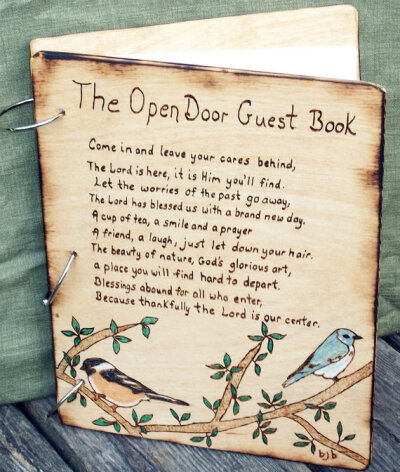 The Open Door Guest Book
Come in and leave your cares behind,
The Lord is here, it is Him you'll find.
Let the worries of the past go away,
The Lord has blessed us with a brand new day.
A cup of tea, a smile and a prayer
A friend, a laugh, just let down your hair.
The beauty of nature, God's glorious art,
a place you will find hard to depart.
Blessings abound for all who enter,
Because thankfully the Lord is our center.
bjb